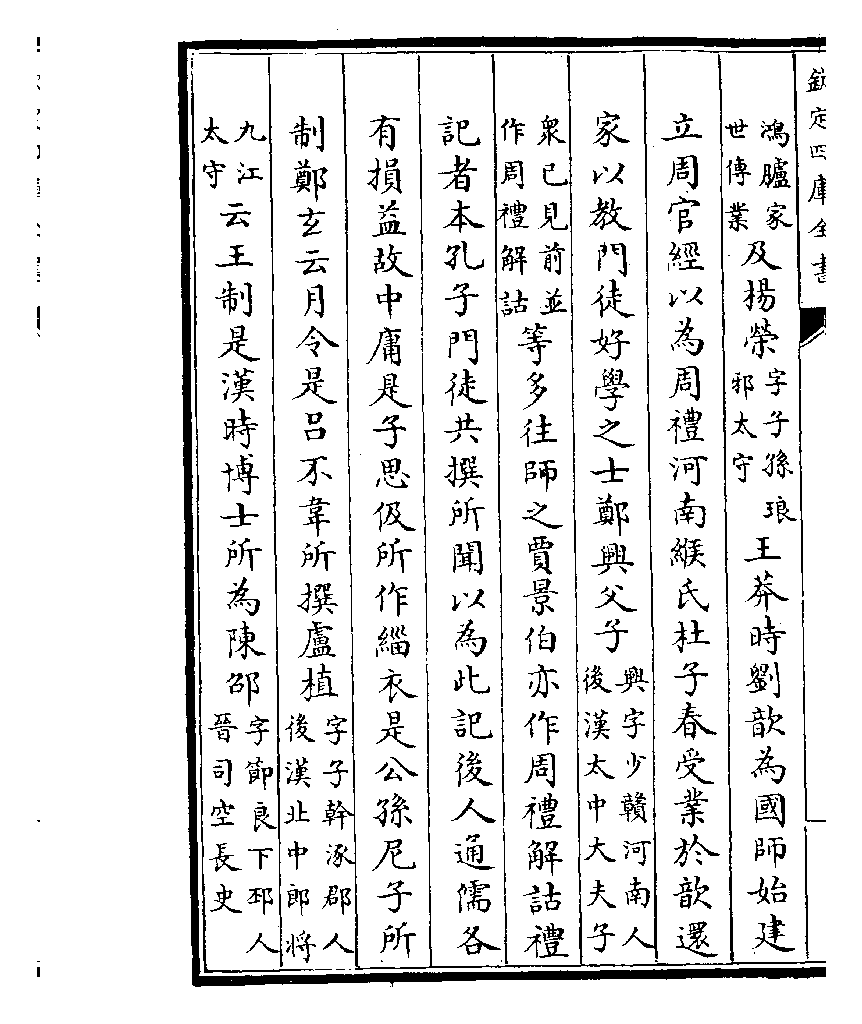 欽定四庫全書
鴻臚家世傳業及揚榮字子孫琅邪太守王莽時劉歆為國師始建
立周官經以為周禮河南緱氏杜子春受業於歆還
家以教門徒好學之士鄭興父子興字少贛河南人後漢太中大夫子
衆已見前並作周禮解詁等多往師之賈景伯亦作周禮解詁禮
記者本孔子門徒共撰所聞以為此記後人通儒各
有損益故中庸是子思伋所作緇衣是公孫尼子所
制鄭玄云月令是呂不韋所撰盧植字子幹涿郡人後漢北中郎將
九江太守云王制是漢時博士所為陳邵字節良下邳人晉司空長史